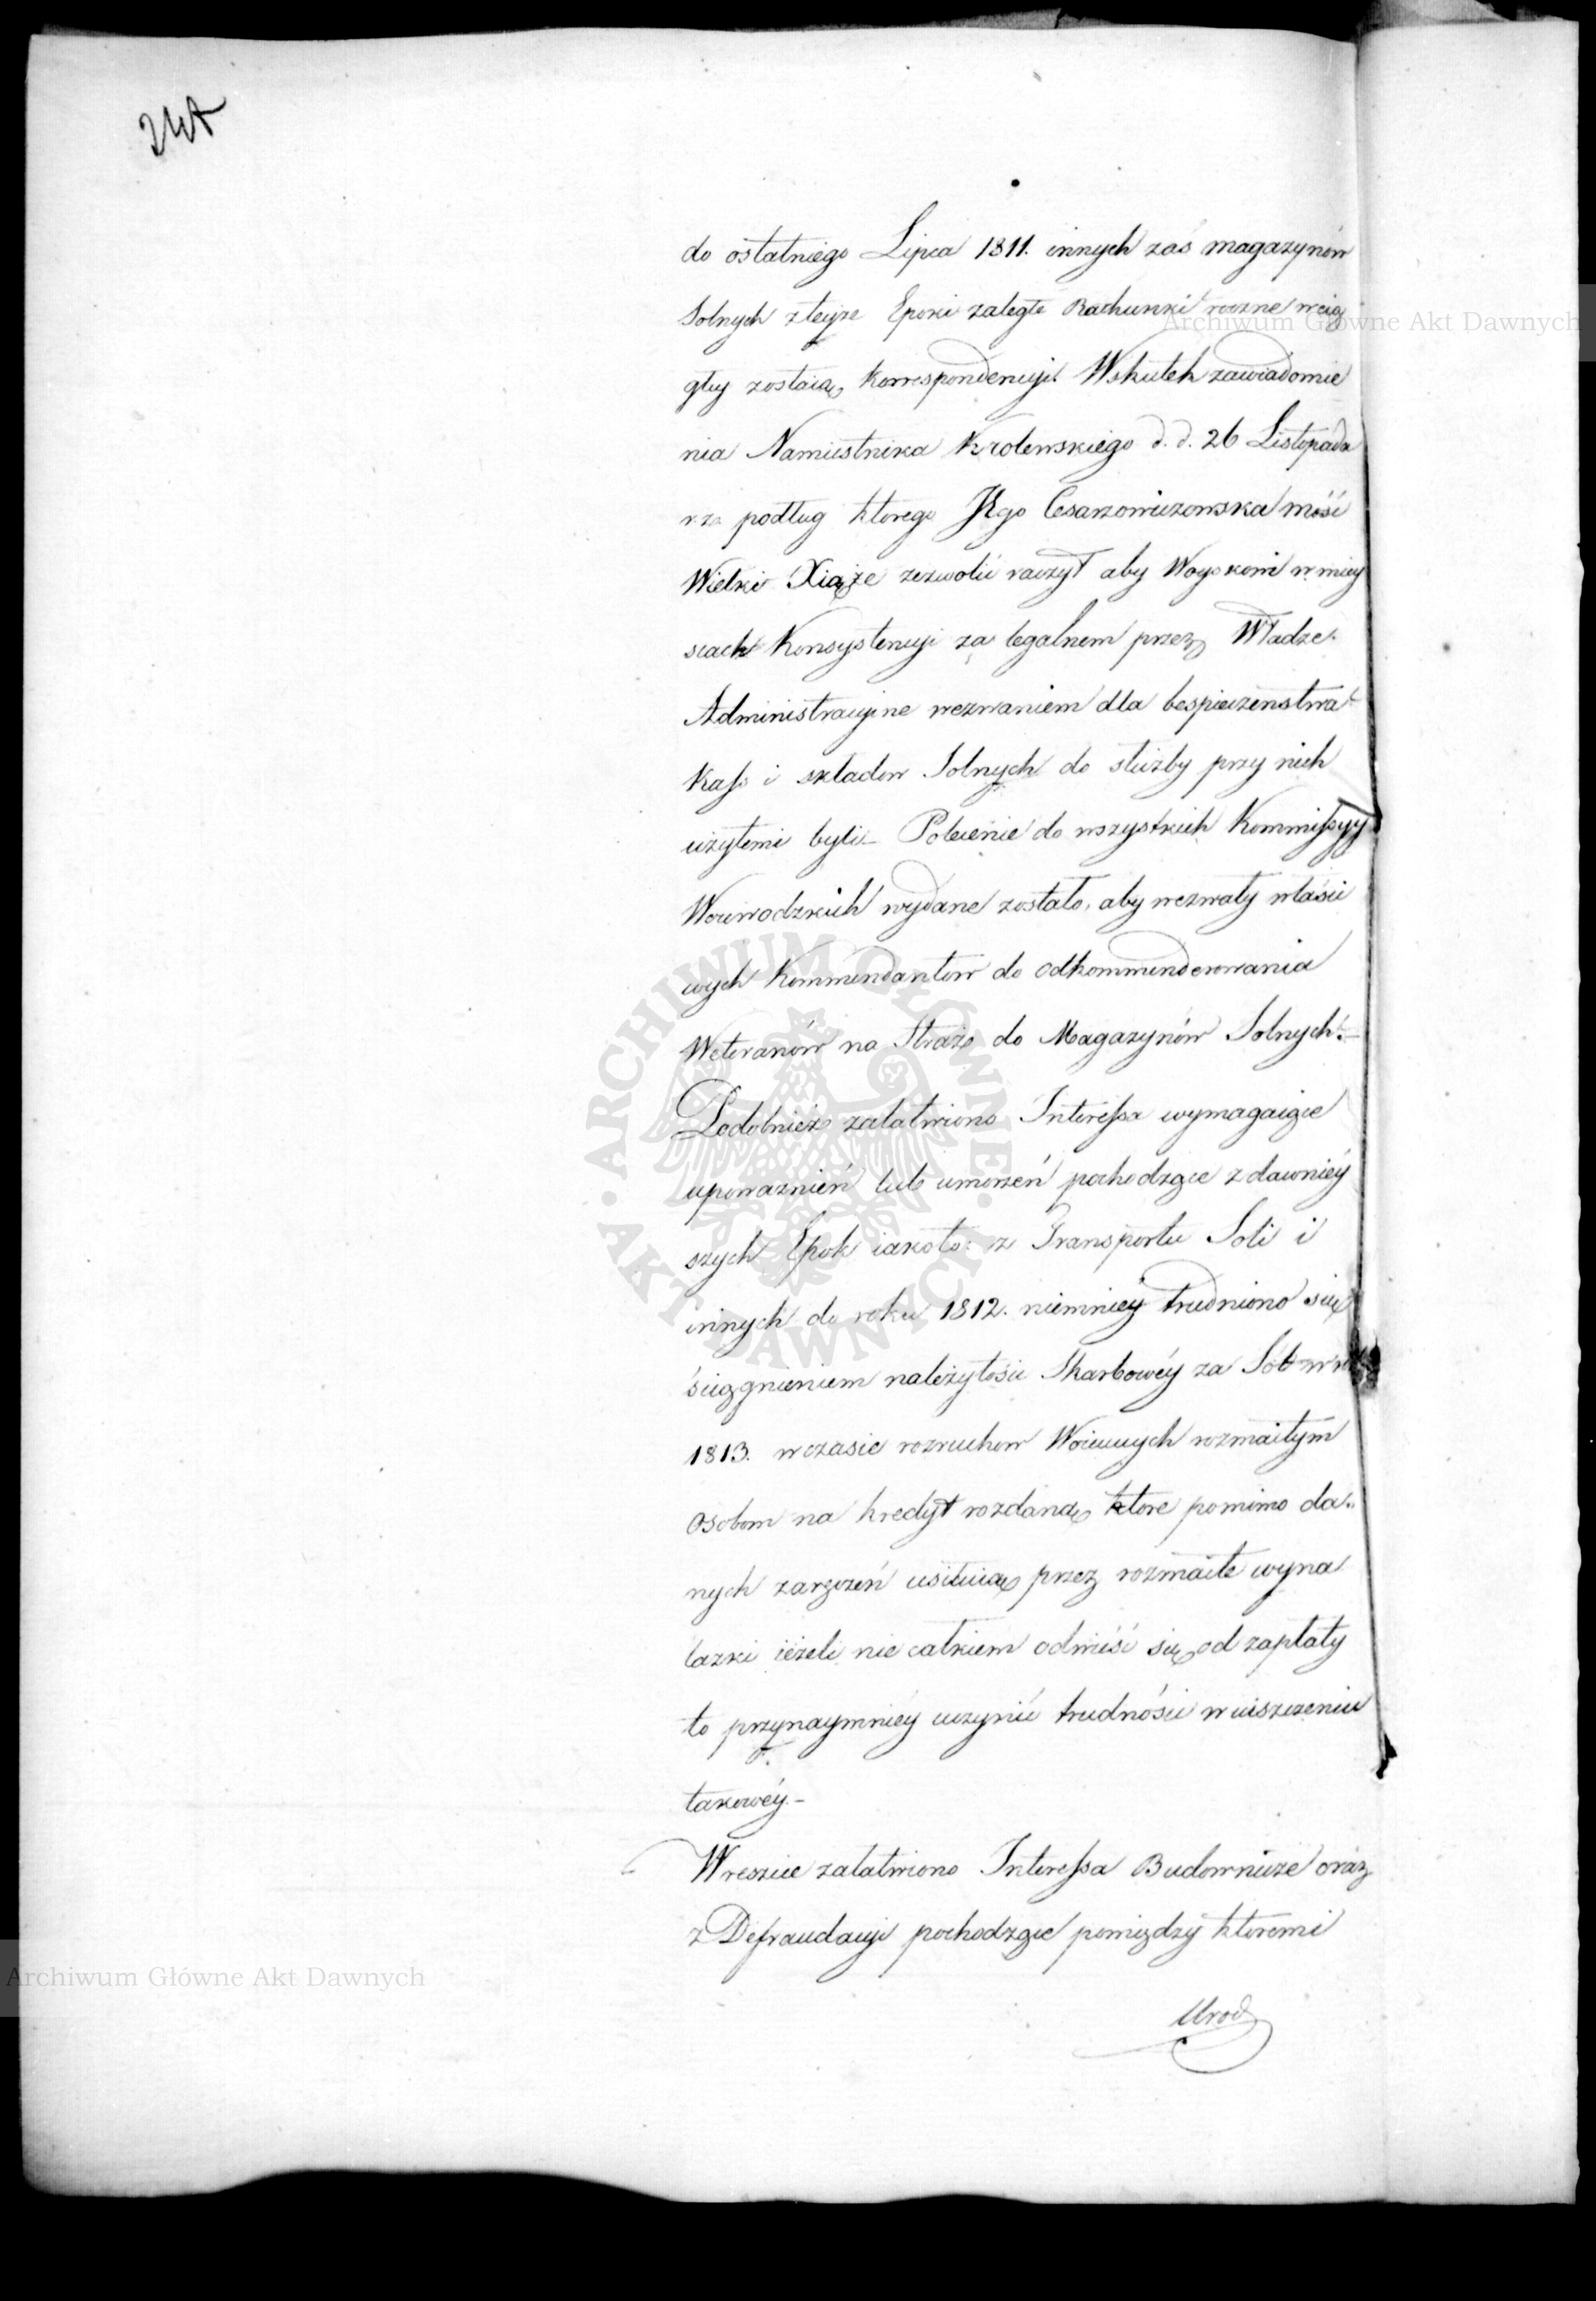 do ostatniego Lipca 1811. innych zaś magazynów
Solnych z teyże Epoki zaległe Rachunki roczne w cią
głey zostaią Korrespondencyi. Wskutek zawiadomie
nia Namiestnika Krolewskiego d. d. 26 Listopada
r. z. podług ktorego JEgo Cesarzowiczowska mość
Wielki Xiąże zezwolić raczył aby Woyskowi w miey
scach Konsystencyi za legalnem przez Władze
Administracyine wezwaniem dla bespieczenstwa
Kass i składow Solnych do służby przy nich
użytemi byli – Polecenie do wszystkich Kommissyy
Woiewodzkich wydane zostało, aby wezwały właści
wych Kommendantow do odkommenderowania
Weteranów na Straż do Magazynów Solnych. –
Podobnież załatwiono Interessa wymagaiące
upoważnień lub umorzeń pochodzące z dawniéy
szych Epok iakoto: z Transportu Soli i
innych do roku 1812. niemniey trudniono się
ściągnieniem należytości Skarbowéy za Sól w r.
1813. w czasie rozruchow Woiennych rozmaitym
osobom na kredyt rozdaną, ktore pomimo da-
nych zarządzeń usiłuią przez rozmaite wyna
lazki ieżeli nie całkiem odnieść się od zapłaty
to przynaymniéy uczynić trudności w uiszczeniu
takowéy. –
Wreszcie załatwiono Interessa Budownicze oraz
z Defraudacyi pochodzące pomiędzy ktoremi
Urod
Archiwum Główne Akt Dawnych
ARCHIWUM GŁÓWNE AKT DAWNYCH
Archiwum Główne Akt Dawnych